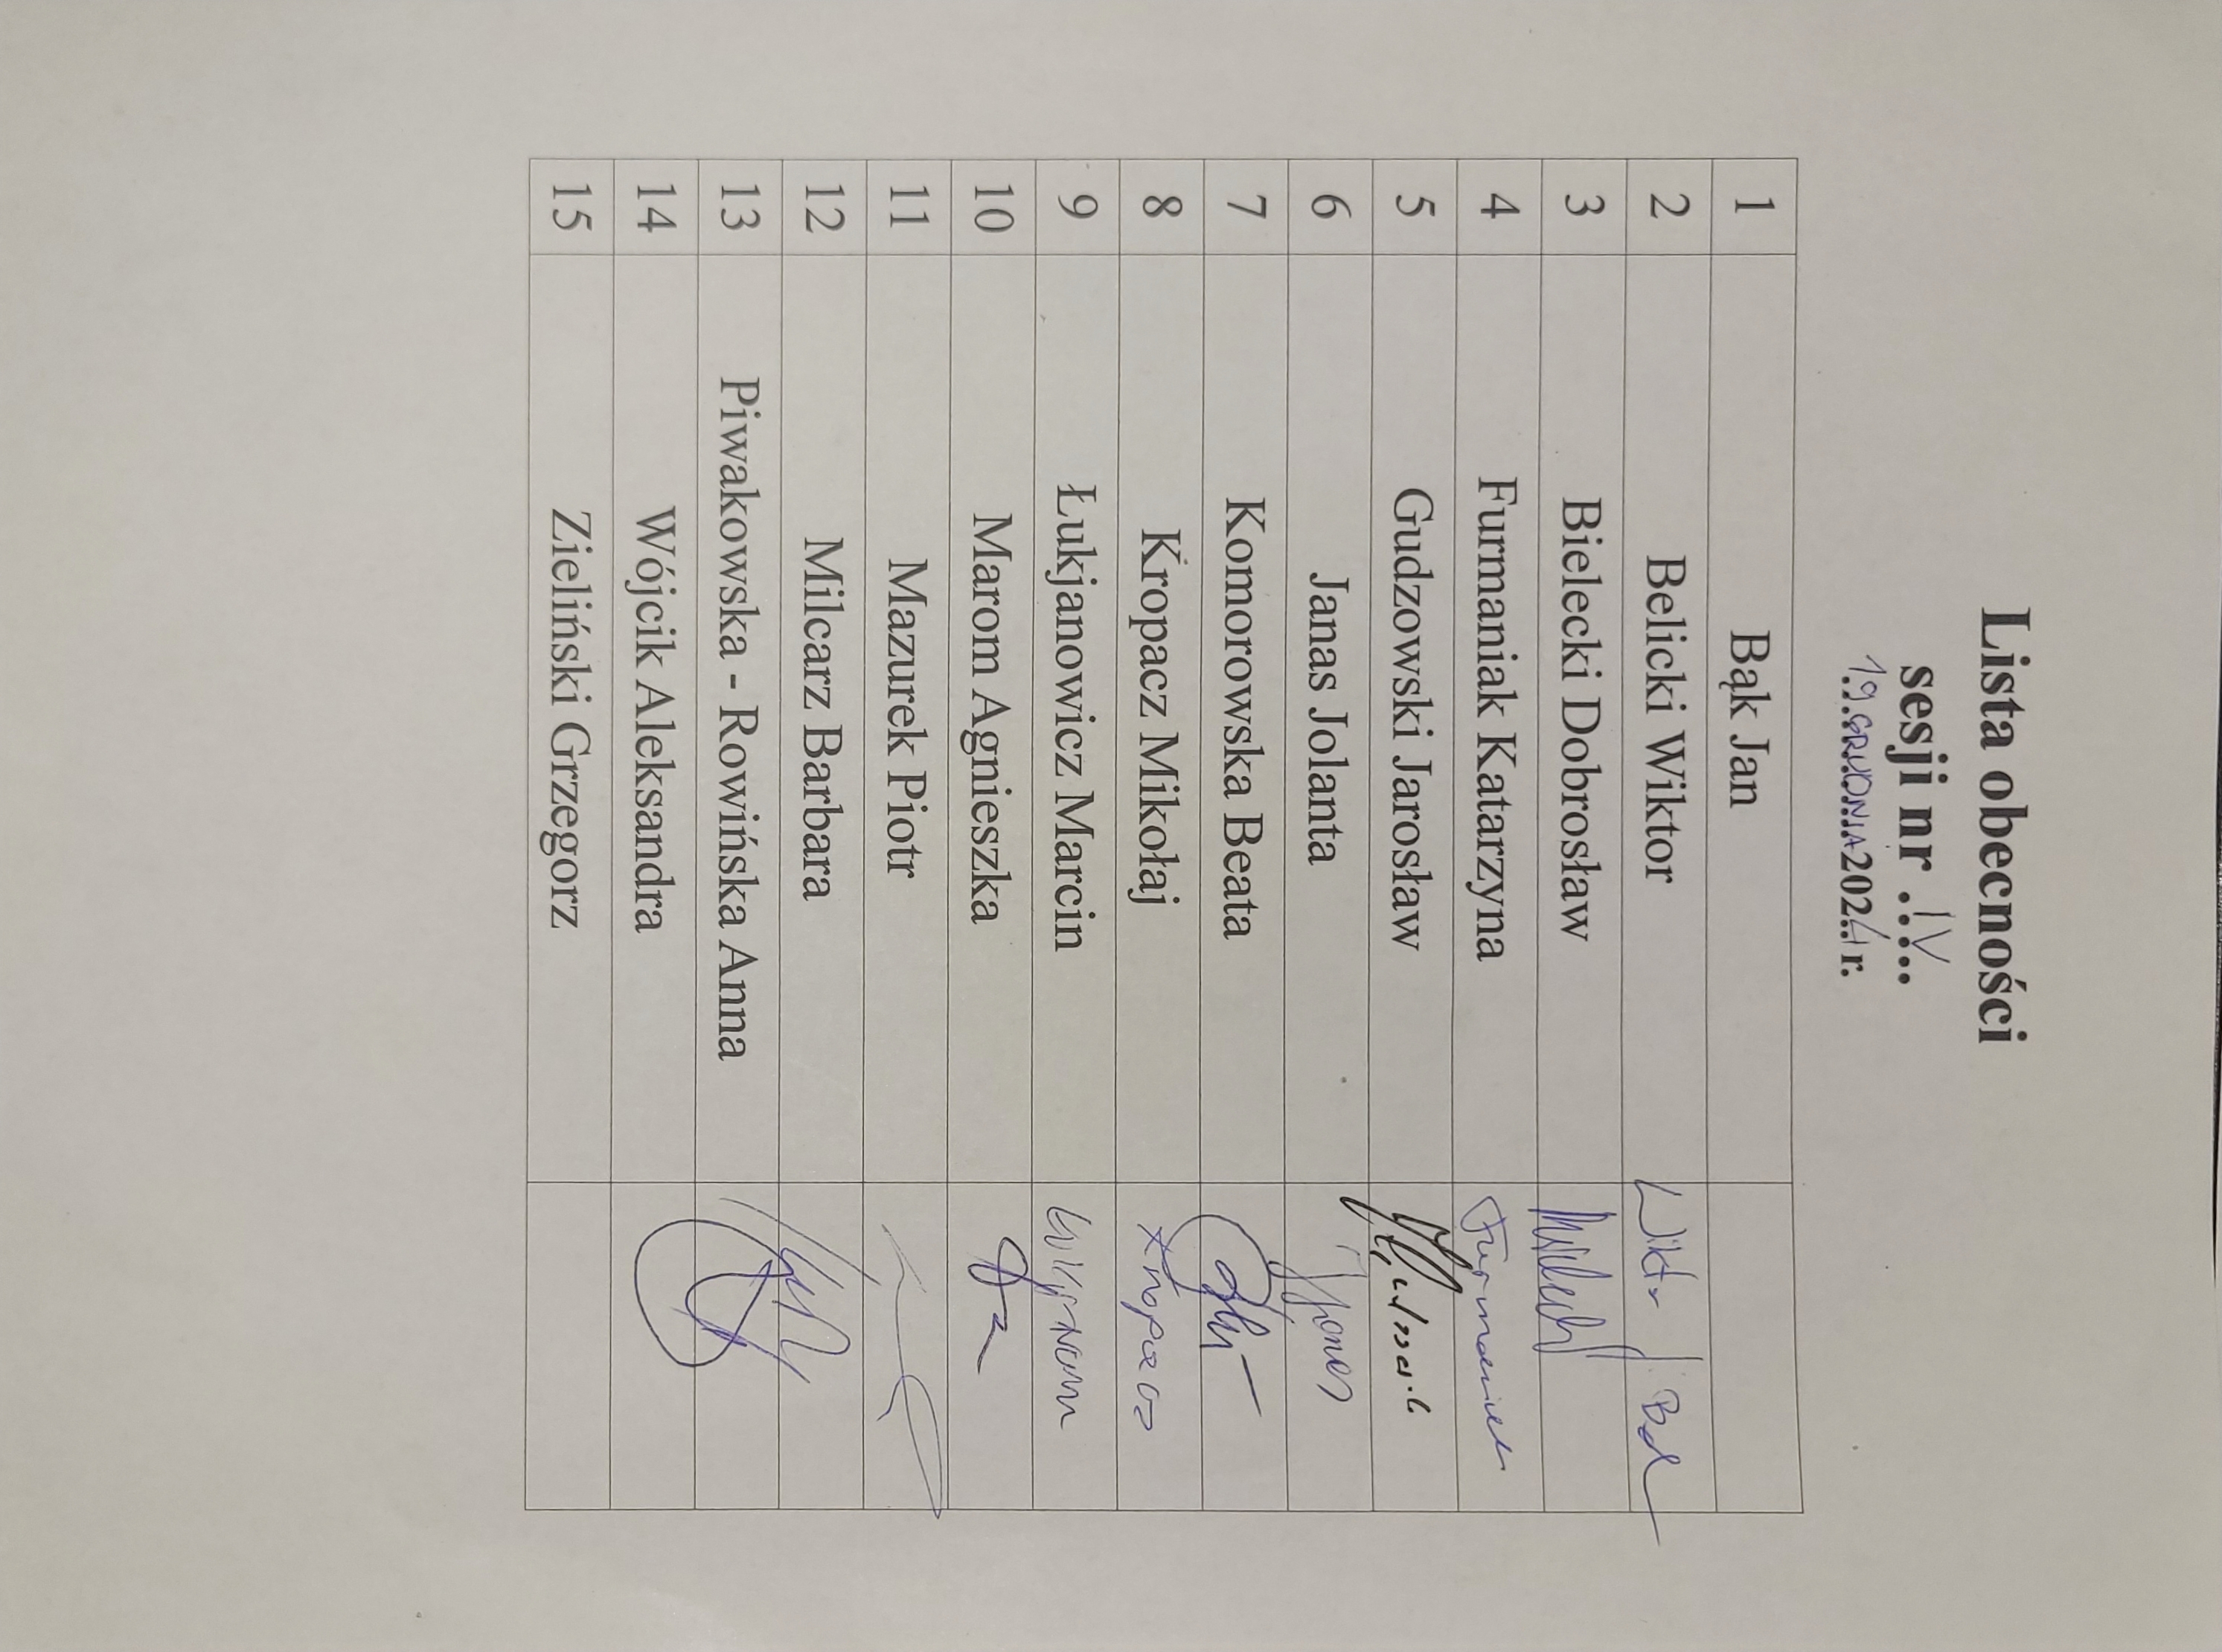 Lista obecności
sesji nr ..IV..
19 GRUDNIA 2024 r.
1 Bąk Jan
2 Belicki Wiktor Wiktor
3 Bielecki Dobrosław
4 Furmaniak Katarzyna Furmaniak
5 Gudzowski Jarosław
6 Janas Jolanta
7 Komorowska Beata
8 Kropacz Mikołaj Kropacz
9 Łukjanowicz Marcin
10 Marom Agnieszka
11 Mazurek Piotr
12 Milcarz Barbara
13 Piwakowska - Rowińska Anna
14 Wójcik Aleksandra
15 Zieliński Grzegorz